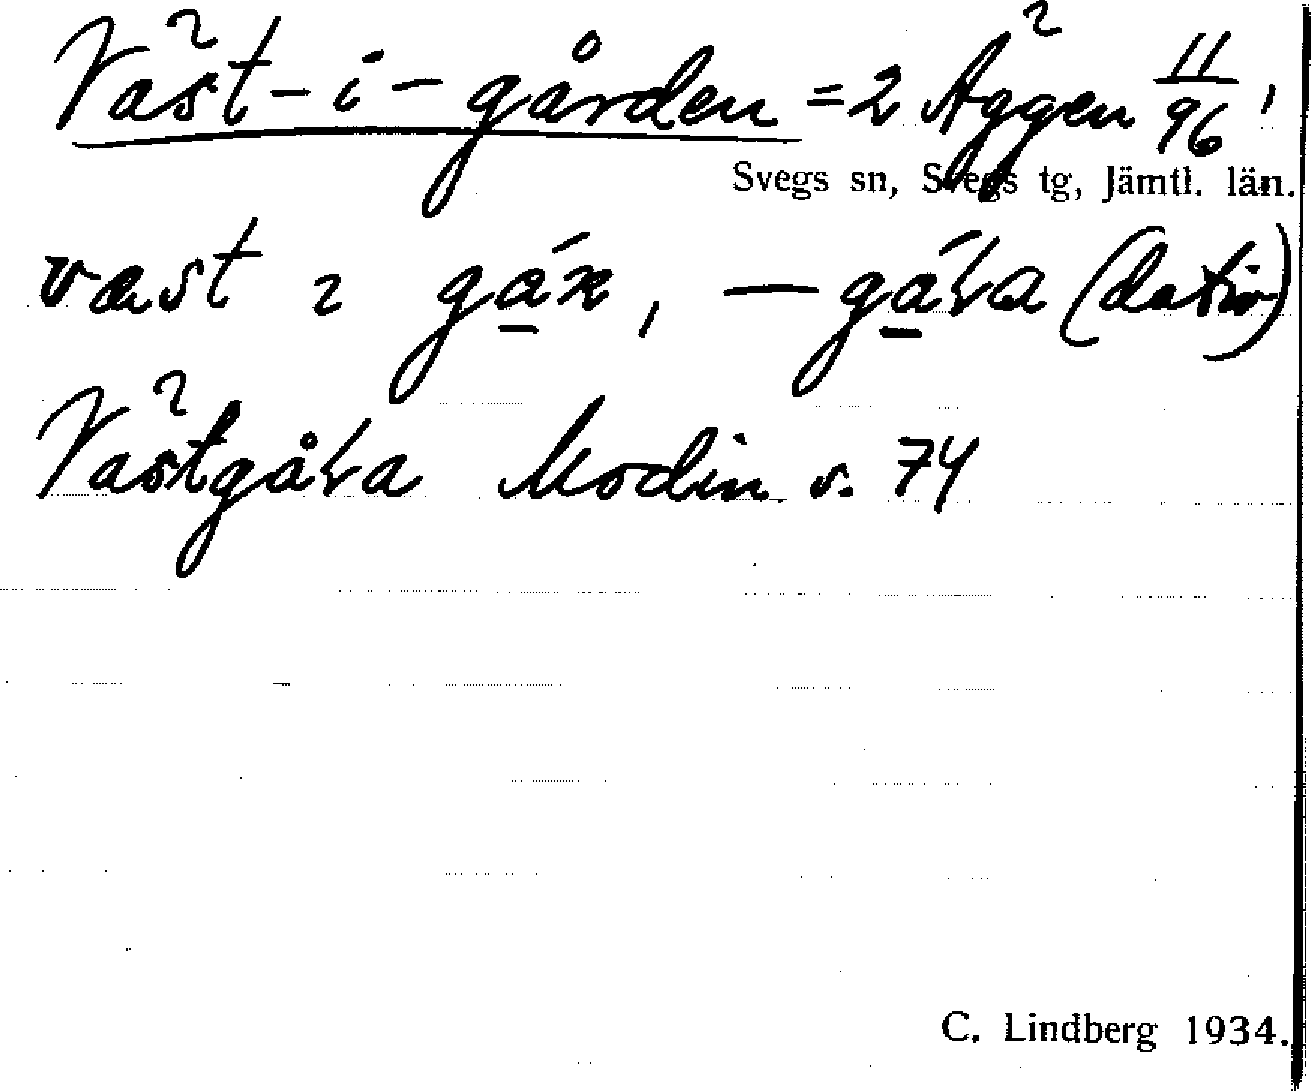 Väst-i-gården = 2 Äggen 11/96,
Svegs sn, Svegs tg, Jämtl. län.
væst ı gáṉ, – gáɫa (dativ)
Västgåɫa Modin s. 74
C. Lindberg 1934.